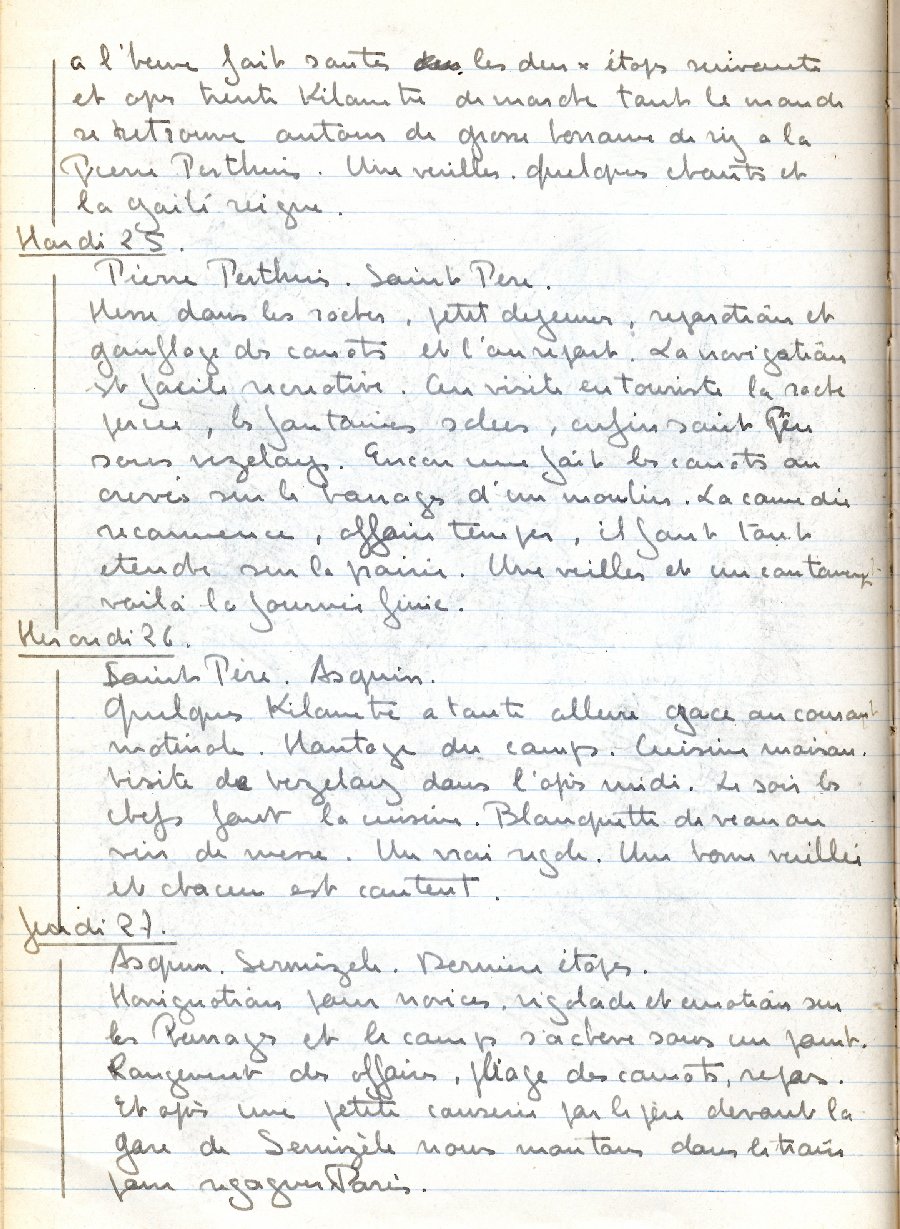 a l'heure fait sauter les deux étaps suivante
et aps trente Kilametre de marche tout le monde
se retrouve autour de grosse bassaume de riz a la
Pierre Perthuis. Une veilles. quelques chants et
la gaité reigne.
Mardi 25.
Pierre Perthuis. Saint Pere.
Messe dans les roches, petit dejeuner, reparation et
gonflage des canots et l'on repart. La navigation
est facile recreative. On visite en touriste la roche
percee, les fontaines salees, enfin saint Père
sous vezelay. Encore une fait les canots on
crevés sur le barrages d'un moulin. La comedie
recommence, affaire temper, il faut tout
etendre sur la prairie. Une veilles et un
voila la journée finie.
Mercredi 26.
Saint Père. Asquin.
Quelques Kilametre a toute allure grace au courant
matinale. Montage du camps. Cuisine maison.
Visite de vezelay dans l'après midi. Le soir les
chefs font la cuisine. Blanquette de veau au
vin de messe. Un vrai regale. Une bonne veillée
et chacun est content.
Jeudi 27.
Asquin. Sermizele. Derniere étapes.
Navignation pour novices, rigolade et emotion sur
les Barrages et le camps s'acheve sous un pont.
Rangement des affaires, pliage des canots, repas.
Et après une petite causerie par le père devant la
gare de Sermizèle nous montons dans le train
pour regagner Paris.